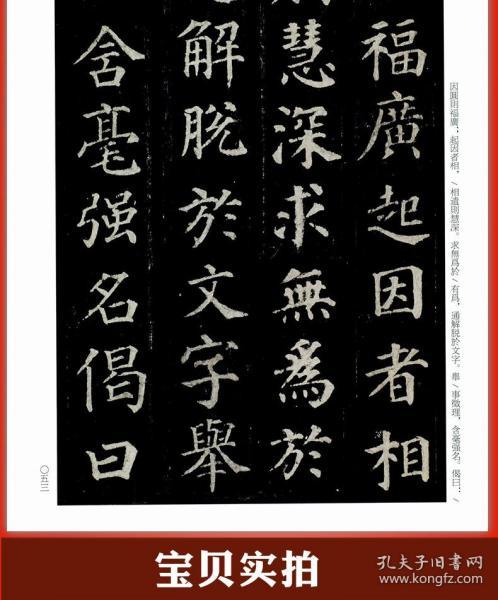 福廣起因者相
慧深求無爲於
解脫於文字舉
含毫强名偈曰
因圓則福廣，起因者相，/相遣則慧深。求無爲於/有爲，通解脱於文字。舉/事徵理，含毫强名。偈曰：/
〇五三
宝贝实拍
孔夫子旧书网
www.kongfz.com